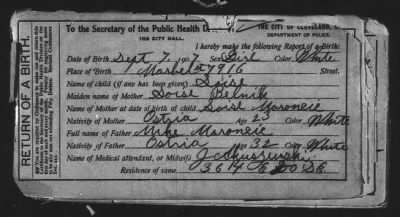 To the Secretary of the Public Health D
THE CITY OF CLEVELAND,
DEPARTMENT OF POLICE.
103 CITY HALL.
I hereby make the following Report of a Birth:
Date of Birth Sept 7, 1907 Sex Girl Color White
Place of Birth Marble 7916 Street.
Name of child (if any has been given) Soise
Maiden name of Mother Soise Belnite
Name of Mother at date of birth of child Soise Maroneie
Nativity of Mother Ostria Age 23 Color White
Full name of Father Mike Maroneie
Nativity of Father Ostria Age 32 Color White
Name of Medical attendant, or Midwife
Residence of same 3614 E 80 SE
RETURN OF A BIRTH.